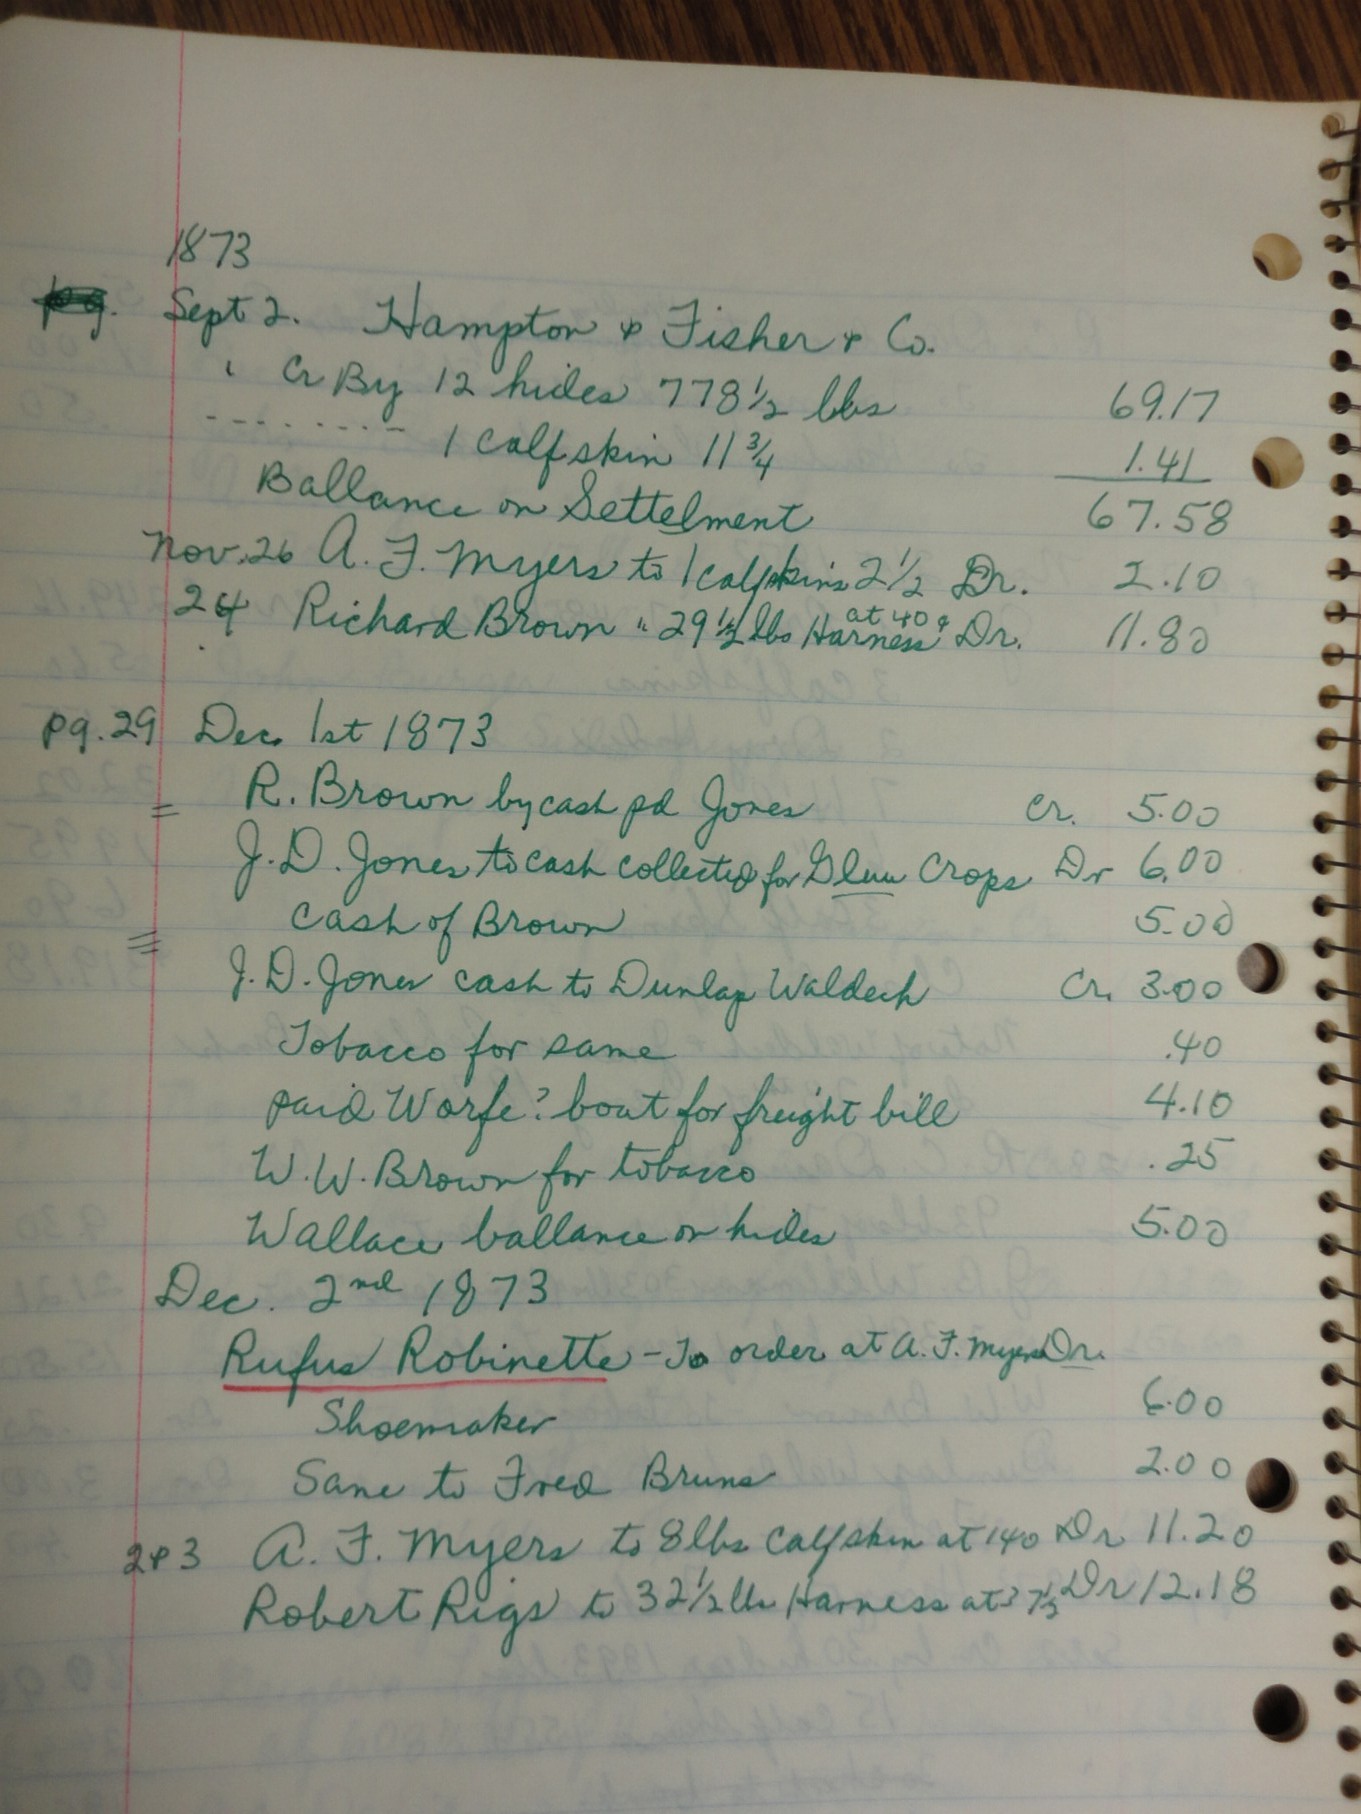 1873
pg. Sept 2. Hampton & Fisher & Co.
" Cr By 12 hides 778 1/2 lbs 69.17
- - - - - - - - 1 Calfskin 11 3/4 1.41
Ballance on Settelment 67.58
Nov. 26 A. F. Myers to 1 calfskins 2 1/2 Dr. 2.10
24 Richard Brown " 29 1/2 lbs Harness at 40¢ Dr. 11.80
pg. 29 Dec. 1st 1873
= R. Brown by cash pd Jones Cr. 5.00
J. D. Jones to cash collected for Crops Dr 6.00
Cash of Brown 5.00
J. D. Jones cash to Dunlap Waldeck Cr. 3.00
Tobacco for same .40
paid Worfe? boat for freight bill 4.10
W. W. Brown for tobacco .25
Wallace ballance on hides 5.00
Dec. 2nd 1873
Rufus Robinette - To order at A. F. Myers Dr.
Shoemaker 6.00
Same to Fred Bruns 2.00
2&3 A. F. Myers to 8 lbs Calfskin at 140 Dr 11.20
Robert Rigs to 32 1/2 lbs Harness at 37 1/2 Dr 12.18